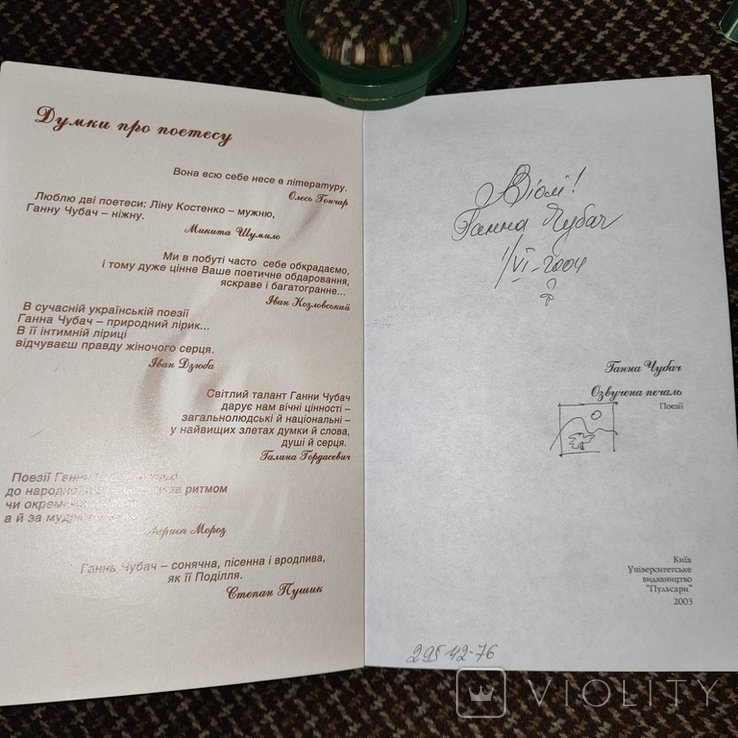 Думки про поетесу
Вона всю себе несе в літературу.
Олесь Гончар
Люблю дві поетеси: Ліну Костенко – мужню,
Ганну Чубач – ніжну.
Микита Шумило
Ми в побуті часто себе обкрадаємо,
і тому дуже цінне Ваше поетичне обдаровання,
яскраве і багатогранне...
Іван Козловський
В сучасній українській поезії
Ганна Чубач – природний лірик...
В її інтимній ліриці
відчуваєш правду жіночого серця.
Іван Дзюба
Світлий талант Ганни Чубач
дарує нам вічні цінності –
загальнолюдські й національні –
у найвищих злетах думки й слова,
душі й серця.
Галина Гордасевич
Поезії Ганни
до народної за ритмом
чи
а й за
Лариса Мороз
Ганна Чубач – сонячна, пісенна і вродлива,
як її Поділля.
Степан Пушик
Віолі!
Ганна Чубач
1/VI-2004
Ганна Чубач
Озвучена печаль
Поезії
Київ
Університетське
видавництво
"Пульсари"
2003
295 42-76
VIOLITY